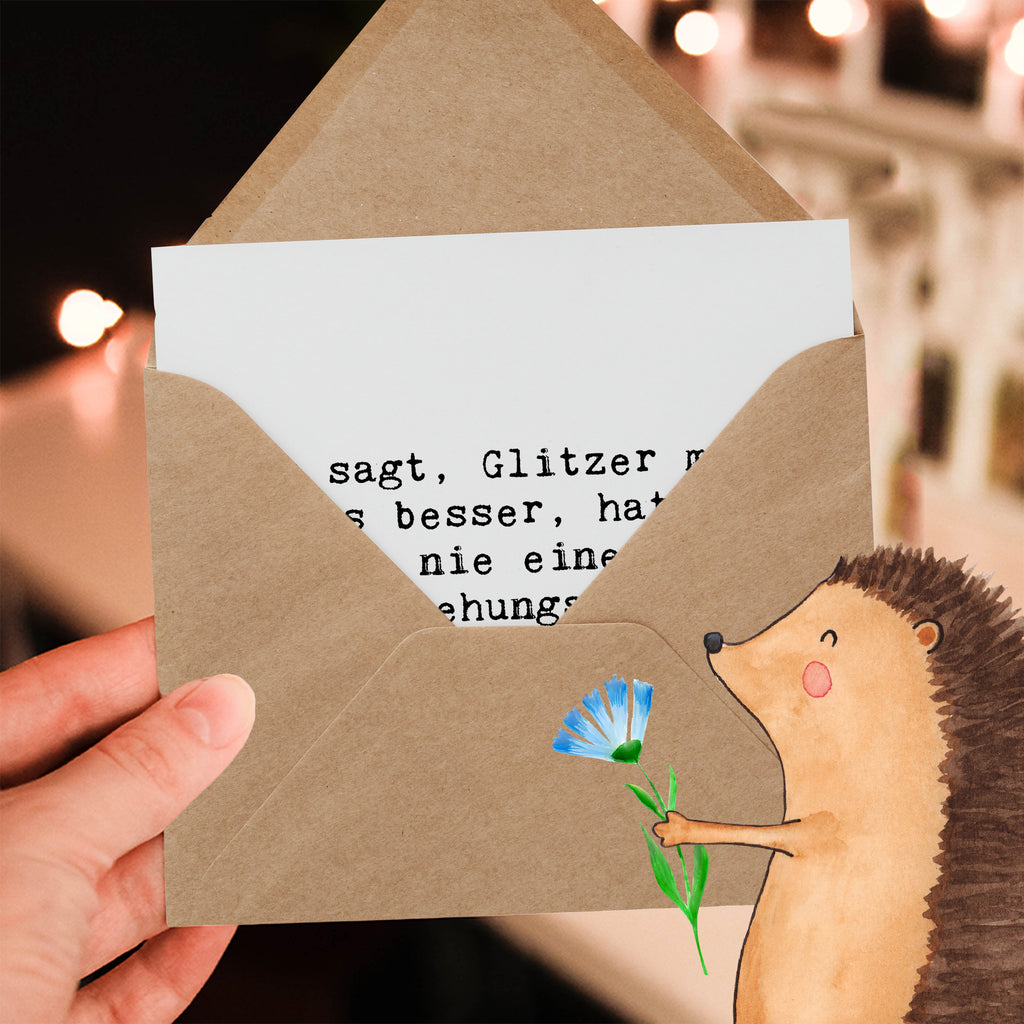 sagt, Glitzer m
s besser, hat
nie eine
ehungs